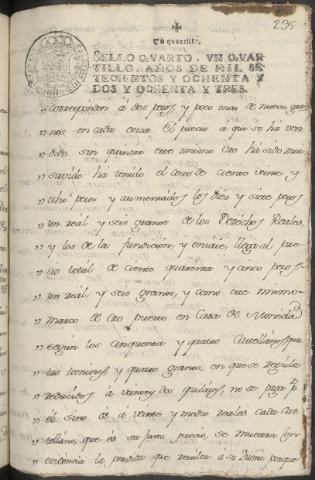 235
Un quartillo,
SELLO QVARTO, VN QVAR-
TILLO, AÑOS DE MIL SE-
TECIENTOS Y OCHENTA Y
DOS Y OCHENTA Y TRES.
" corresponden á dos pesos, y poco mas de nueve gra
" nos en cada onza. El precio a que se ha ven
" dido sin quintar este mismo Oro há sido mui
" subido há tenido el caro de ciento veinte y
" ocho pesos y aumentados los dies y siete pesos
" un real y seis granos de los Derechos Reales,
" y los de la fundicion y ensaie, llega al pre
" cio total de ciento quarenta y cinco pesos
" un real, y seis granos, y como este mismo
" marco de Oro puesto en Casa de Moneda
" según los cinquenta y quatro Castellanos, qua
" tro tomines y quatro granos, en que se regula
" reducidos á veinte y dos quilates, no se paga
" él, sino es á veinte y medio reales cada cas
" tellano, que es su justo precio, se muestra con
" evidencia la perdida que resulta a su Dueño, porque